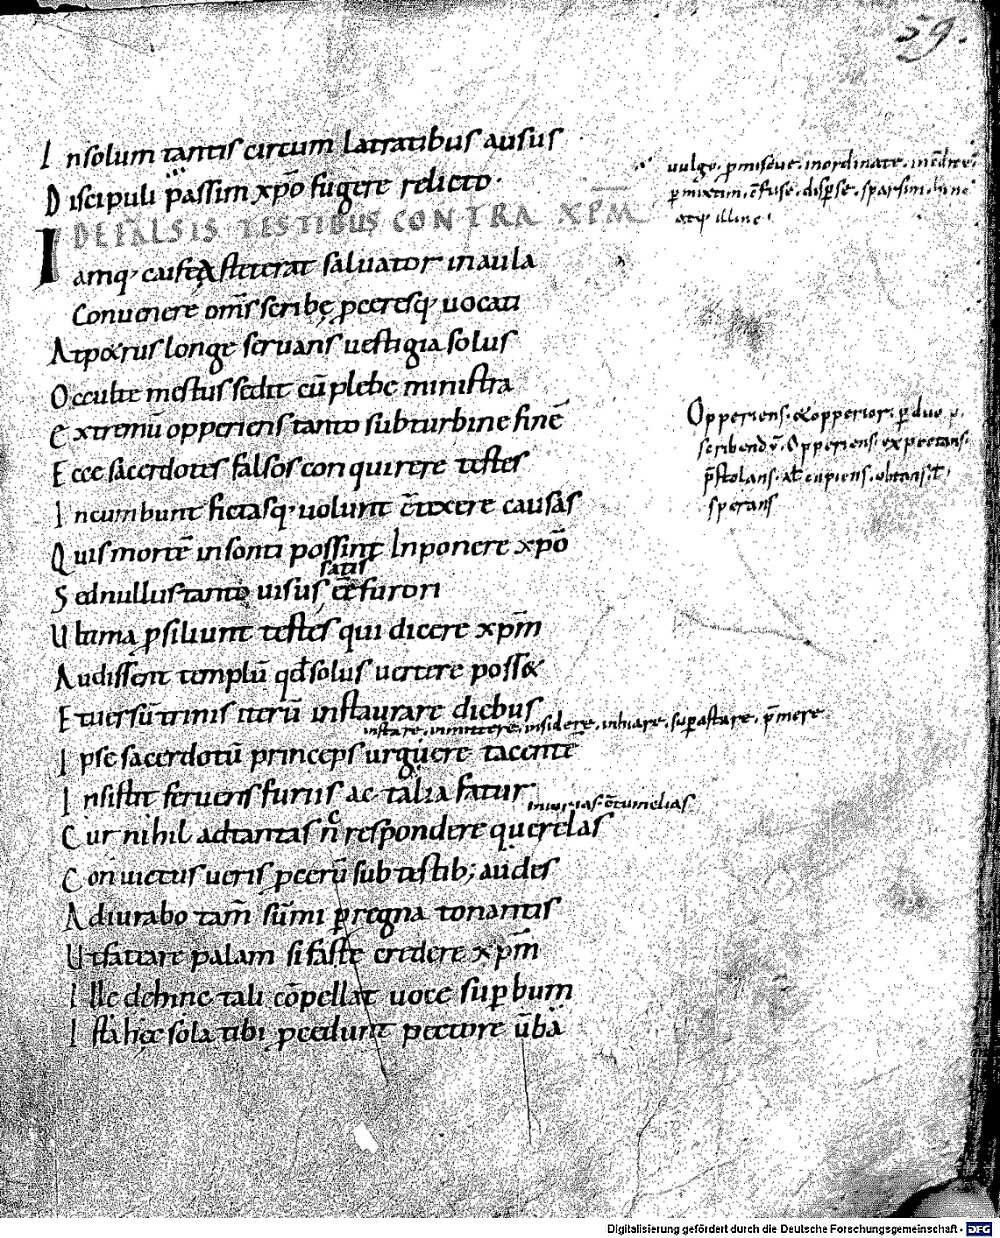 59.
I nsolum tantis circum latratibus ausus
D iscipuli passim xp̄o fugere relicto·
DE FALSIS TESTIBUS CONTRA XP̄M
I amq; caifę a steterat saluator in aula
Conuenere om̄s scribę pceresq; uocati
A tpetrus longe seruans uestigia solus
O cculte mestus sedit cū plebe ministra
E xtremū opperiens tanto sub turbine finē
E cce sacerdotes falsos conquirere testes
I ncumbunt fictasq; uolunt c̄texere causas
Q uis mortē insonti possint Inponere xp̄o
satis
S ed nullus tanto uisus ēē furori
U ltima psiliunt testes qui dicere xp̄m
A udissent templū qd̄ solus uertere posset
E t uersū trinis iterū instaurare diebus
instare, inmittere, insidere, inhiare, sup astare, p̄mere
I pse sacerdotū princeps urguere tacentē
I nsistit feruens furiis ac talia fatur
iniurias c̄tumelias
C ur nihil ad tantas n̄ respondere querelas
C onuictus ueris pcerū sub testib; audes
A diurabo tam̄ sūmi p regna tonantis
U t fateare palam si fas te credere xp̄m
I lle dehinc tali cōpellat uoce supbum
I sta hęc sola tibi pcedunt pectore ūba
uulgo, pmiscue, inordinate,
pmixtim, c̄fuse, dispse, sparsim, hinc
atq; illinc,
Opperiens, & opperior, p duo p,
scribend ē, Opperiens, expectans,
p̄stolans, at cupiens, obtans, t
sperans
Digitalisierung gefördert durch die Deutsche Forschungsgemeinschaft - DFG